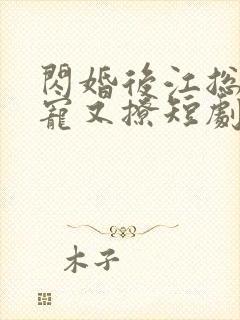 閃婚後江总
寵又撩短劇
木子